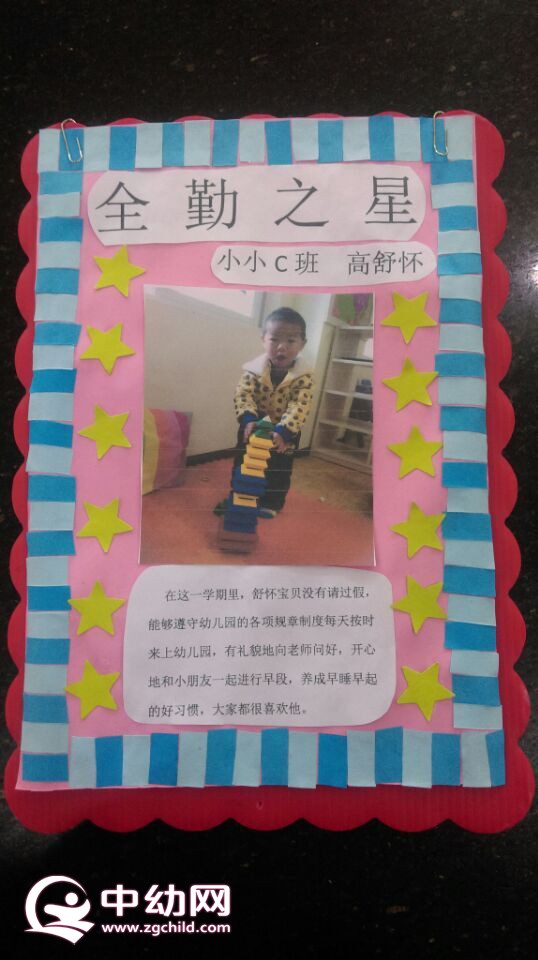 全勤之星
小小C班 高舒怀
在这一学期里，舒怀宝贝没有请过假，
能够遵守幼儿园的各项规章制度每天按时
来上幼儿园，有礼貌地向老师问好，开心
地和小朋友一起进行早段，养成早睡早起
的好习惯，大家都很喜欢他。
中幼网
www.zgchild.com